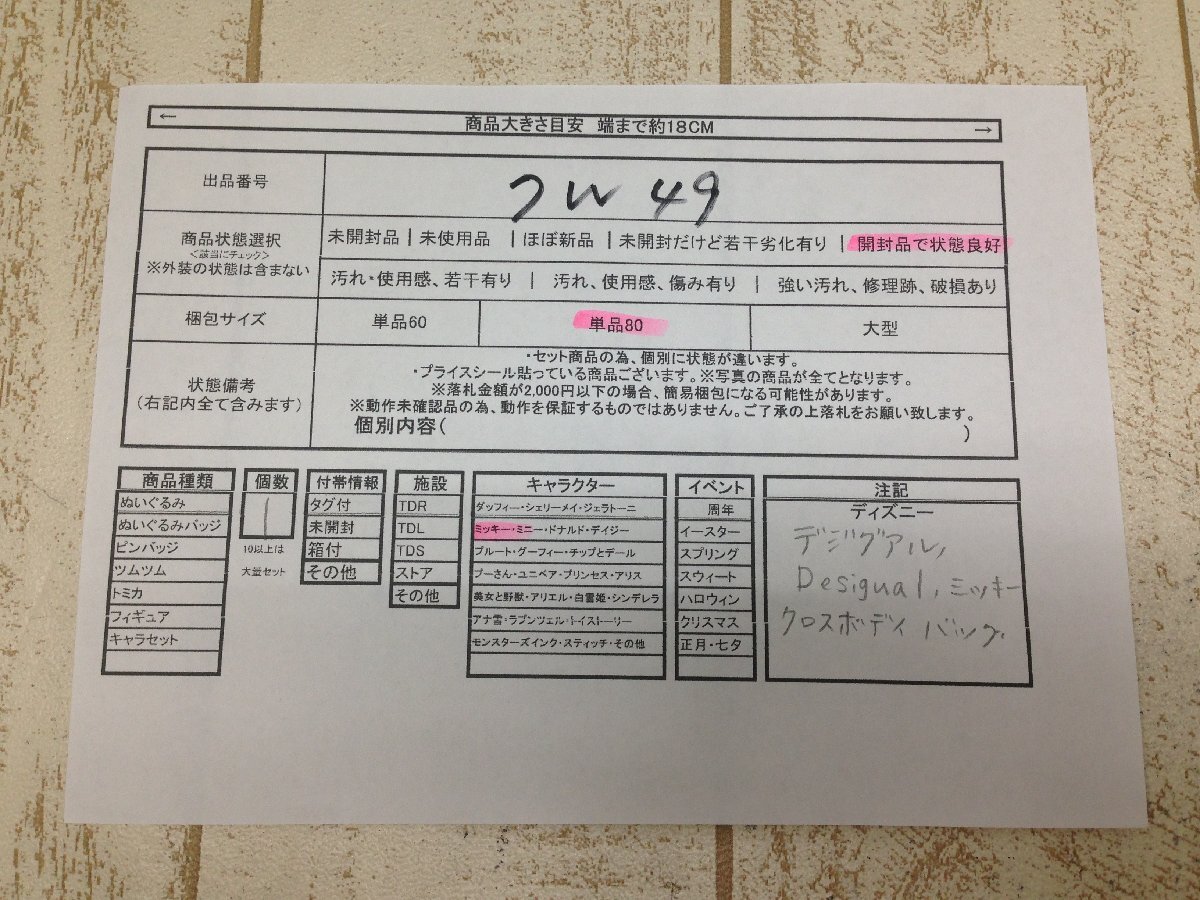 ← 商品大きさ目安 端まで約18CM →
出品番号
フW 49
商品状態選択
<該当にチェック>
※外装の状態は含まない
未開封品 | 未使用品 | ほぼ新品 | 未開封だけど若干劣化有り | 開封品で状態良好
汚れ・使用感、若干有り | 汚れ、使用感、傷み有り | 強い汚れ、修理跡、破損あり
梱包サイズ 単品60 単品80 大型
状態備考
(右記内全て含みます)
・セット商品の為、個別に状態が違います。
・プライスシール貼っている商品ございます。※写真の商品が全てとなります。
※落札金額が2,000円以下の場合、簡易梱包になる可能性があります。
※動作未確認品の為、動作を保証するものではありません。ご了承の上落札をお願い致します。
個別内容( )
商品種類
ぬいぐるみ
ぬいぐるみバッジ
ピンバッジ
ツムツム
トミカ
フィギュア
キャラセット
個数
1
10以上は
大量セット
付帯情報
タグ付
未開封
箱付
その他
施設
TDR
TDL
TDS
ストア
その他
キャラクター
ダッフィー・シェリーメイ・ジェラトーニ
ミッキー・ミニー・ドナルド・デイジー
プルート・グーフィー・チップとデール
プーさん・ユニベア・プリンセス・アリス
美女と野獣・アリエル・白雪姫・シンデレラ
アナ雪・ラプンツェル・トイストーリー
モンスターズインク・スティッチ・その他
イベント
周年
イースター
スプリング
スウィート
ハロウィン
クリスマス
正月・七夕
注記
ディズニー
デジグアル,
Desigual, ミッキー
クロスボディ バッグ